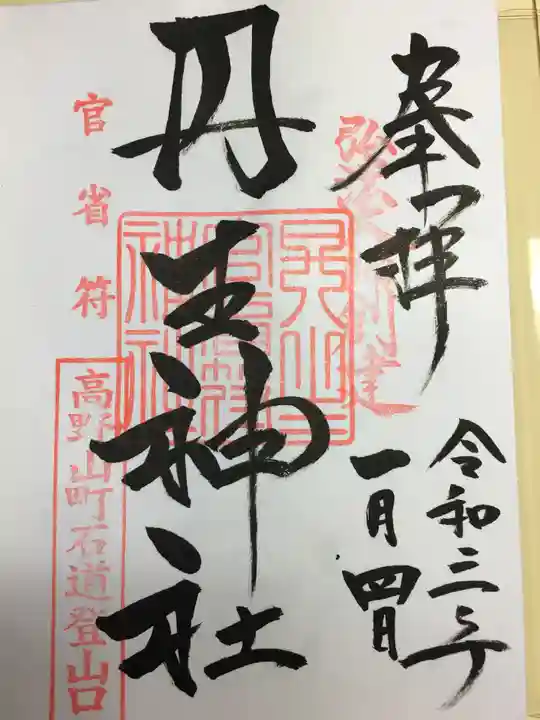 奉拝
令和三年
一月四日
丹生神社
官省符
高野山町石道登山口